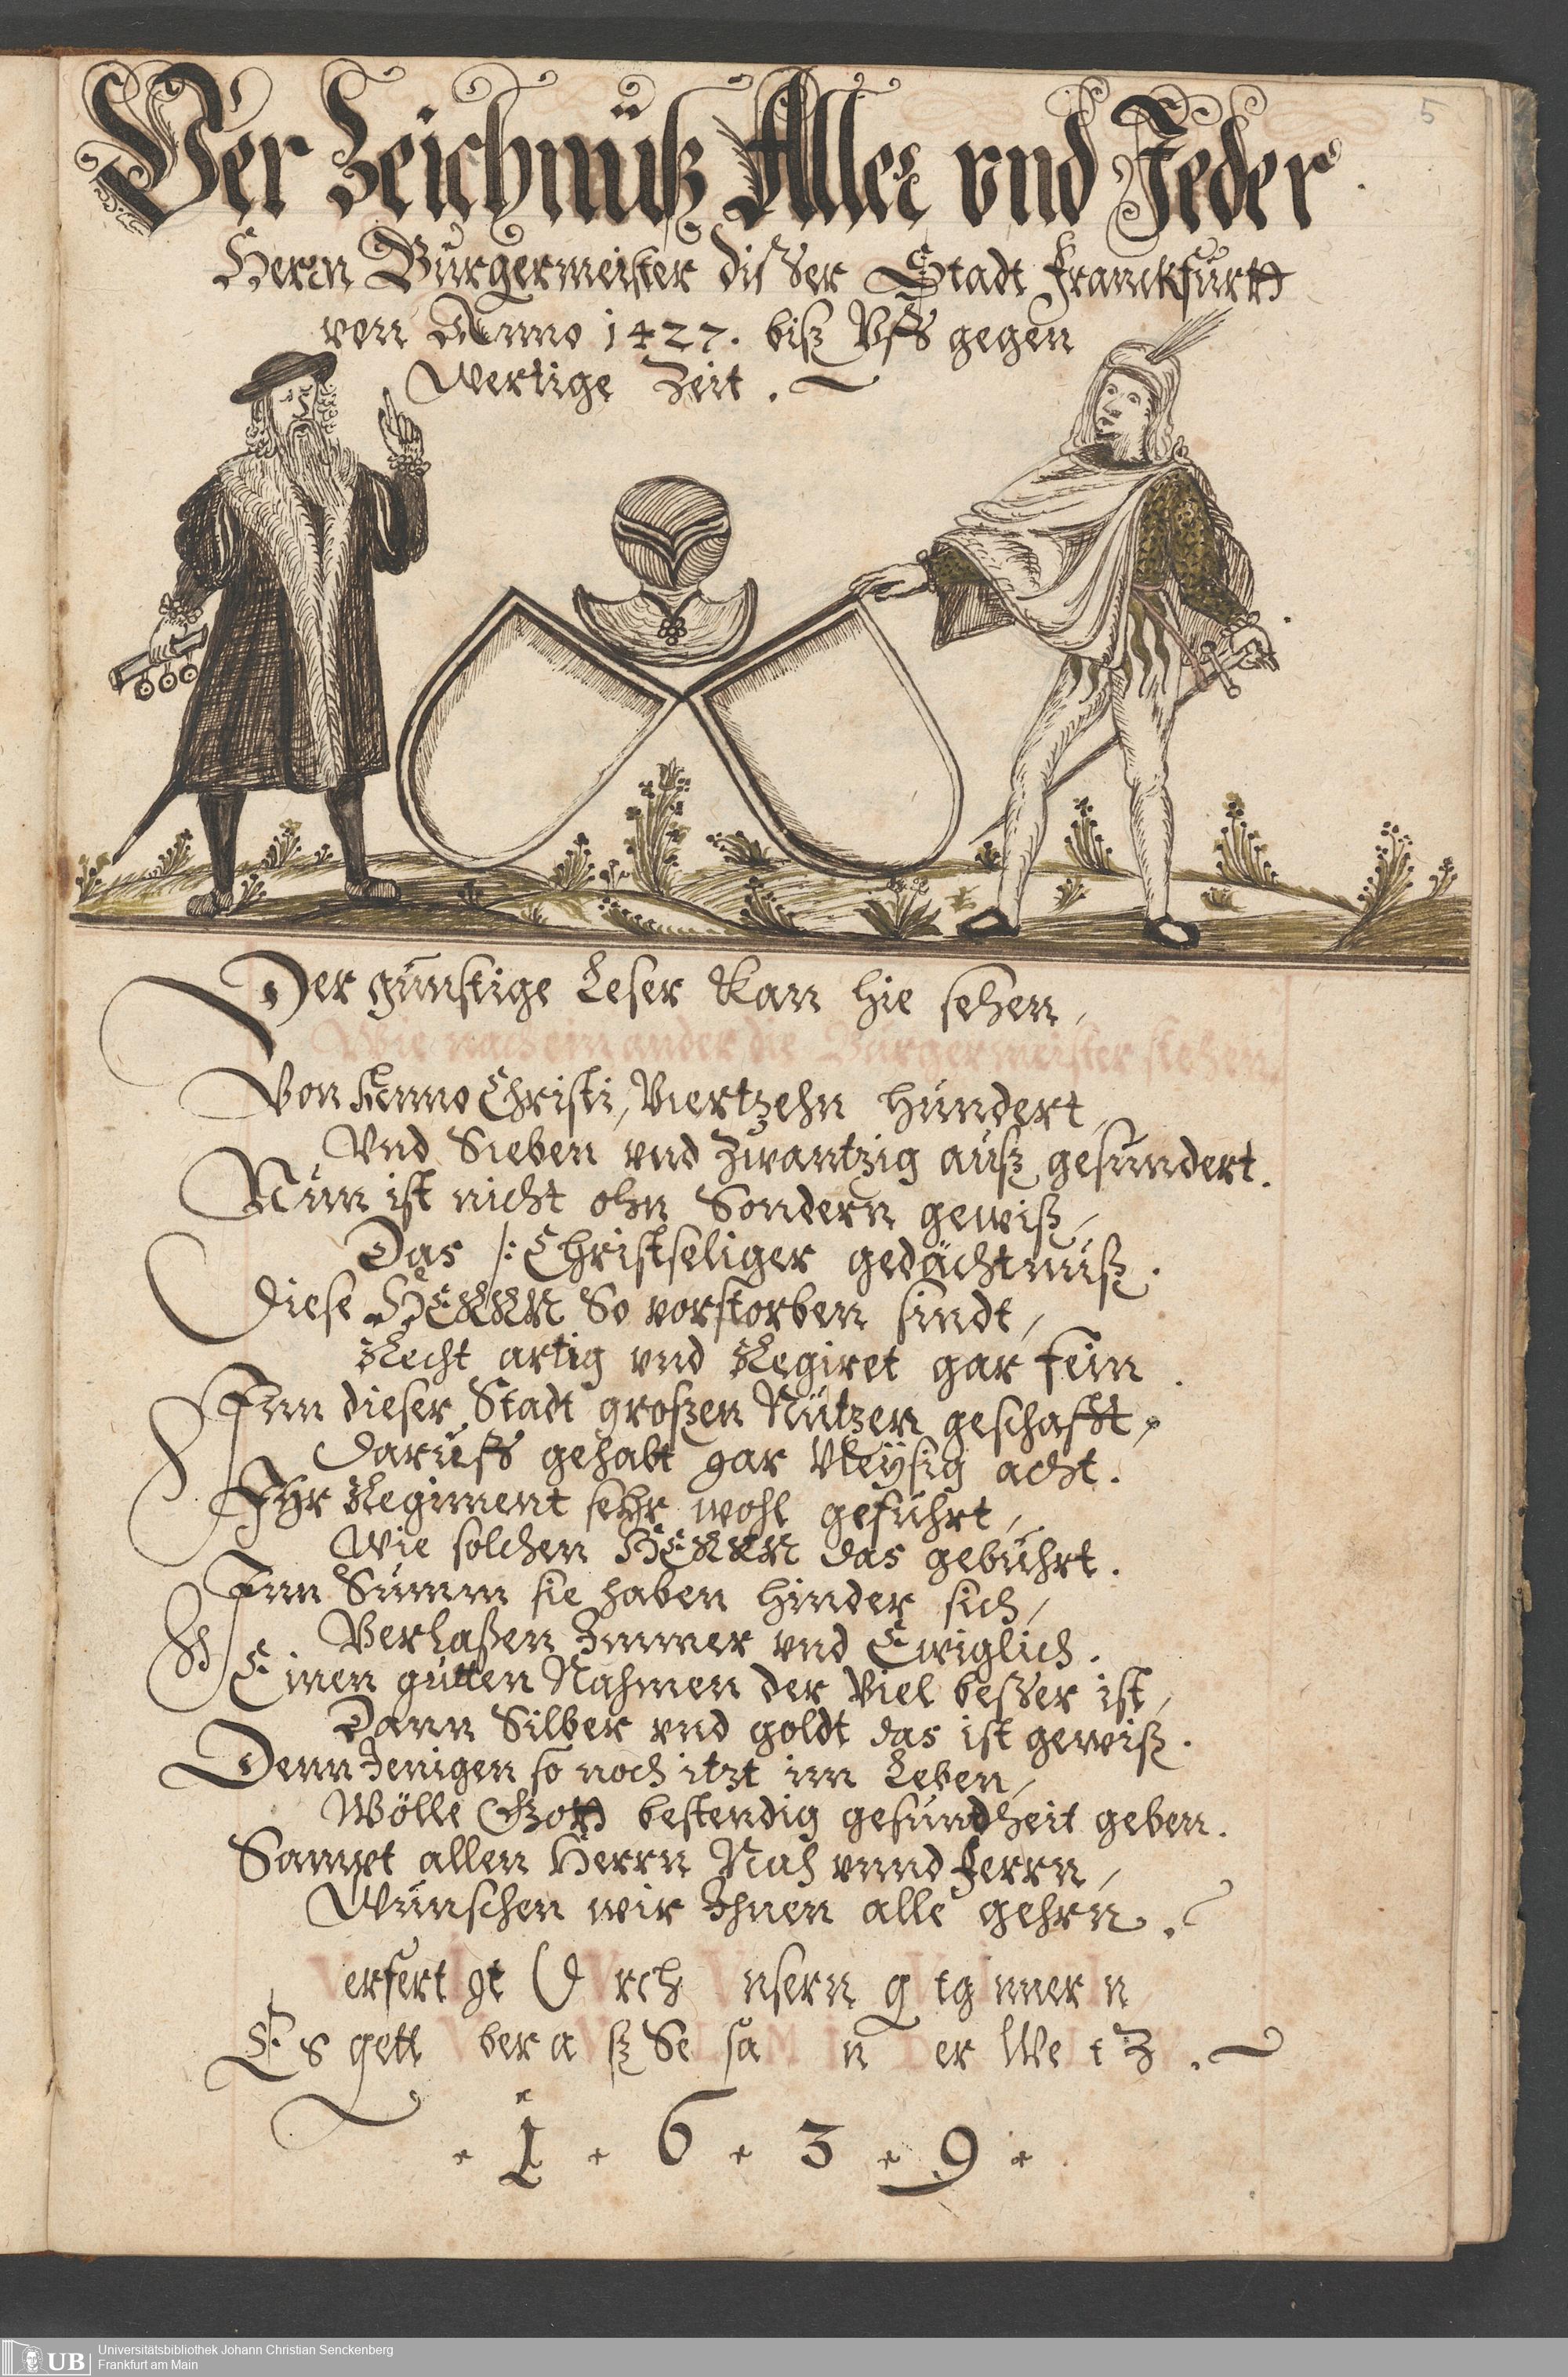 5
Ver Zeichnüß Aller vnd Jeder
Herrn Bürgermeister disßer Stadt Franckfurth
von Anno 1427. biß Vff gegen
Wertige Zeit.
Der günstige Leser Kan hie sehen,
Wie nach ein ander die Bürgermeister stehen
Von Anno Christi, Viertzehn Hundert,
Vnd Sieben vnd Zwantzig auß gesundert.
Nun ist nicht ohn Sondern gewiß,
Das /: Christseliger gedächtnuß.
Diese HERRN So vorstorben sindt,
Recht artig vnd Regiret gar fein.
Inn dieser Stadt großen Nützen geschafft,
Daruff gehabt gar Vleysig acht.
Ihr Regiment sehr wohl geführt,
Wie solchen HERRN das gebührt.
Inn Summ sie haben hinder sich,
Verlaßen Immer vnd Ewiglich.
Einen gutten Nahmen der Viel beßer ist,
Dann Silber vnd goldt das ist gewiß.
Denn Jenigen so noch itzt im Leben,
Wölle Gott bestendig gesundheit geben.
Sampt allen Herrn Nah vnnd Ferrn,
Wünschen wir Ihnen alle gehrn.
VerfertIgt DVrch Vnsern
1639
Universitätsbibliothek Johann Christian Senckenberg
Frankfurt am Main
UB